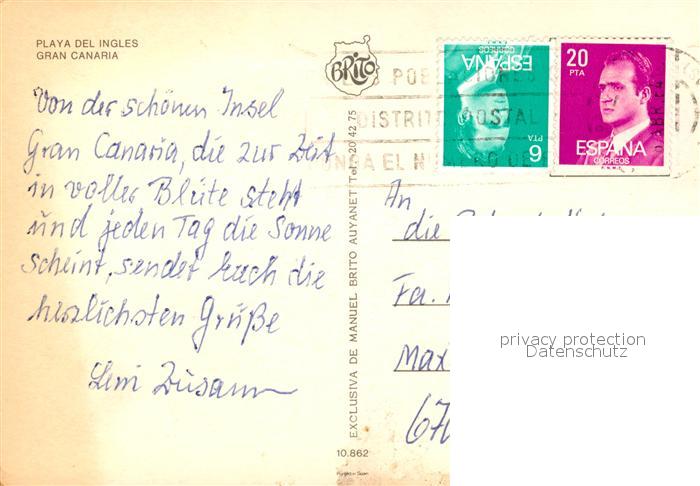 PLAYA DEL INGLES
GRAN CANARIA
BRITO
Von der schönen Insel
Gran Canaria, die zur Zeit
in voller Blüte steht
und jeden Tag die Sonne
scheint, sendet Euch die
herzlichsten Grüße
Leni
EXCLUSIVA DE MANUEL BRITO AUYANET Tel. 20 42 75
10.862
DISTRITO POSTAL
ESPAÑA
CORREOS
6
PTA
20
PTA
ESPAÑA
CORREOS
An
die
Fa.
Max
670
privacy protection
Datenschutz